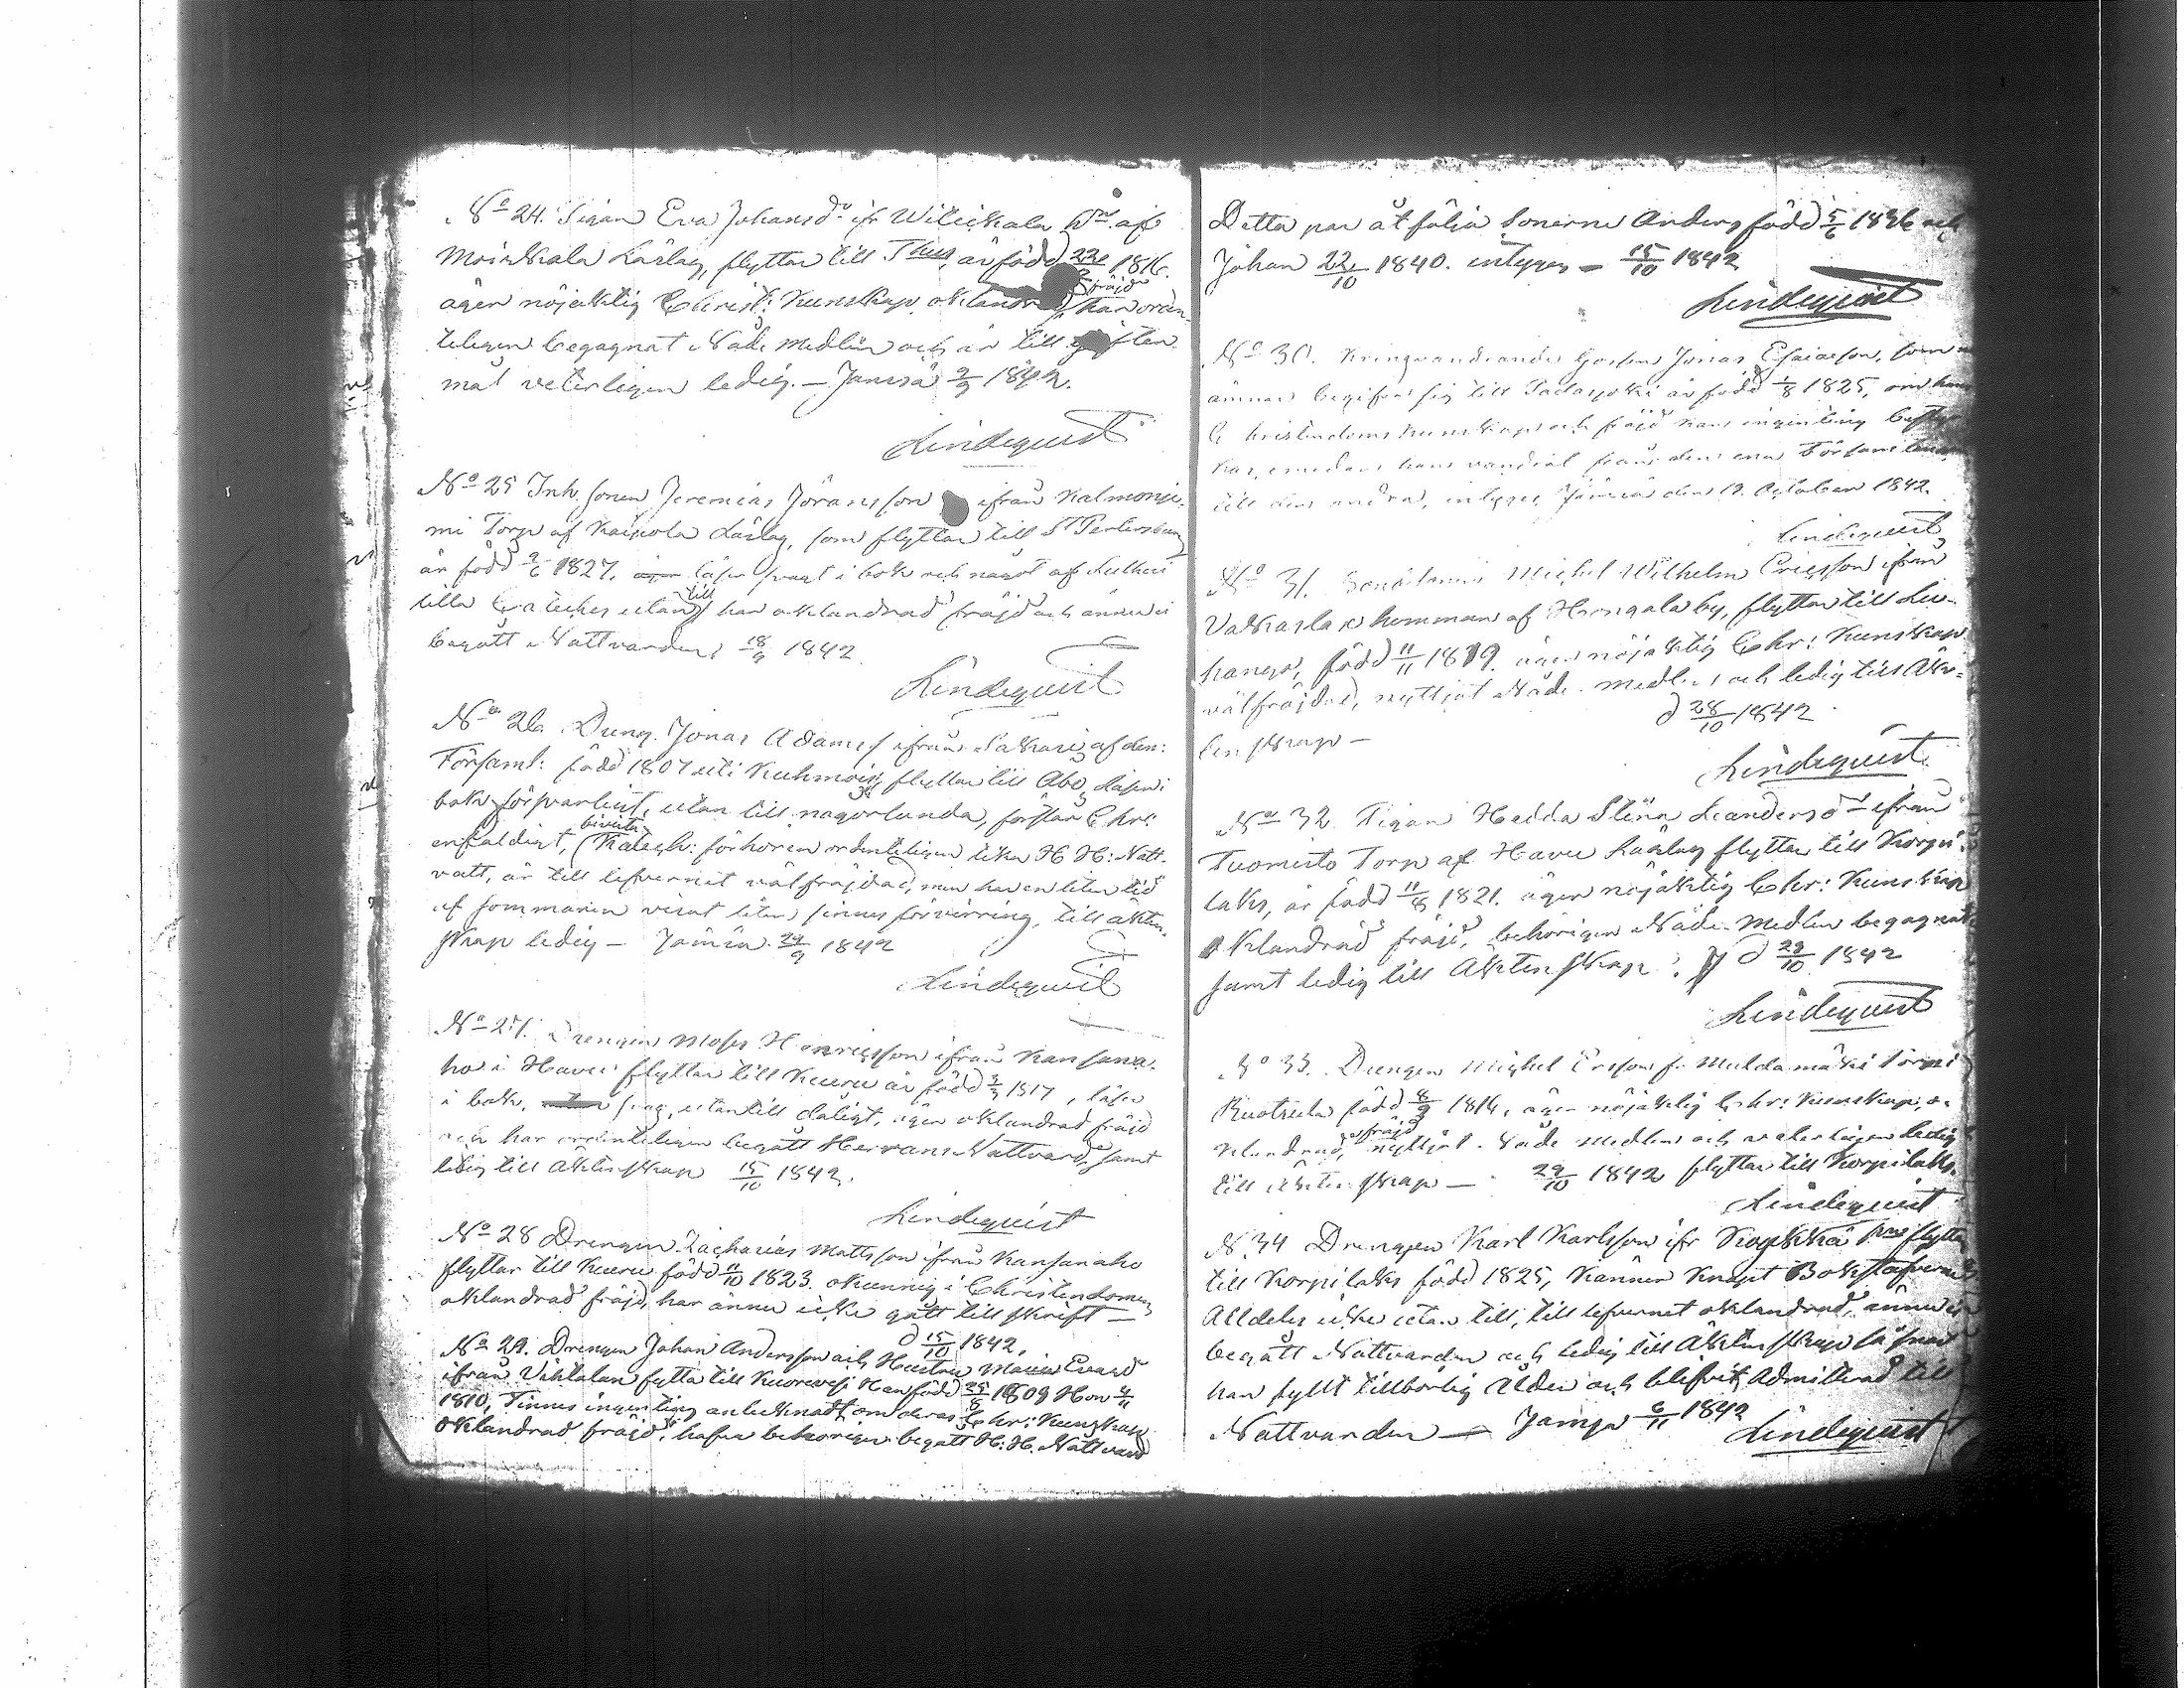 No 24. Pigan Eva Johansdr ifr Wilickala af
Moisiskala Läslag, flyttar till är född 22 1816.
äger nöjaktig Christ: Kunskap, oklandrad fräjd har orden-
teligen begagnat Nåde medlen och är till giften
mål veterligen ledig. — Jämsä 2/9 1842.
Lindequist
No 25 Inh. sonen Jeremias Jöransson ifrån Kalmonie-
mi Torp af Kaipola Läslag, som flyttar till St Petersburg
är född 9/6 1827, läser svagt i bok och något af Lutheri
lilla Cateches utantill har oklandrad fräjd och ännu ei
begått Nattvarden, 18/9 1842
Lindequist
No 26. Dreng. Jonas Adamss ifrån af den:
Församl: född 1807 uti Kuhmois, flyttar till Åbo, läser i
bok försvarligt, utan till någorlunda, förstår Chr:
enfaldigt, bivistat Katech: förhören ordenteligen lika H H: Natt-
vatt, är till lefvernet välfräjdad, men har en liten tid
af sommaren visat liten sinnes förvirring, till äkten-
skap ledig — Jämsä 29/9 1842
Lindequist
No 27. Drengen Moses Henricsson ifrån Kansana-
ho i Havu flyttar till Kuru är född 1817, läser
i bok, svag, utantill dåligt, äger oklandrad fräjd
och har ordenteligen begått Herrans Nattvard, samt
ledig till Äktenskap 15/10 1842.
Lindequist
No 28 Drengen Zacharias Mattsson ifrån Kansanaho
flyttar till Kuru född 11/10 1823. okunnig i Christendomen,
oklandrad fräjd, har ännu icke gått till skrift —
d 15/10 1842.
No 29. Drengen Johan Andersson och Hustru Maria Evasd
ifrån flytta till Kuorevesi Han född 25/8 1809 Hon 4/11
1810, Finnes ingen ting antecknadt om deras Chr: Kunskap
oklandrad fräjd, hafva behörigen begått H: H. Nattvard
Detta par åtfölja Sönerne Anders född 5/6 1836 och
Johan 22/10 1840. intygas — 15/10 1842
Lindequist
No 30. Kringvandrande Gossen Jonas Esaiasson, som
ämnar begifva sig till Padasjoki är född 1/8 1825, om hans
Christendoms kunskap och fräjd kan ingenting
kas, emedan han vandrat från den ena Församlingen
till den andra, intygas, Jämsä den 19. October 1842.
Lindequist
No 31. Michel Wilhelm Ericsson ifrån
hemman af by, flyttar till Lu-
hango, född 11/11 1819. äger nöjaktig Chr: Kunskap
välfräjdad, nyttjat Nåde medlen och ledig till Äk-
tenskap —
d 28/10 1842
Lindequist
No 32. Pigan Hedda Stina Leandersdr ifrån
Tuomisto Torp af Havu Läslag flyttar till Korpi-
laks, är född 11/8 1821. äger nöjaktig Chr: Kunskap
oklandrad fräjd, behörigen Nåde medlen begagnat
samt ledig till Äktenskap. d 29/10 1842
Lindequist
No 33. Drengen Michel Ersson fr Muldamäki Torp i
född 8/9 1816, äger nöjaktig Chr: Kunskap, o-
klandrad fräjd nyttjat Nåde medlen och veterligen ledig
till äktenskap — 29/10 1842 flyttar till Korpilaks.
Lindequist
N 34 Drengen Karl Karlsson ifr flyttar
till Korpilaks född 1825, känner knapt Bokstäfverne
Alldeles icke utan till, till lefvernet oklandrad, ännu ei
begått Nattvarden och ledig till Äktenskap så snart
han fyllt tillbörlig Ålder och blifvit Admitterad till
Nattvarden — Jämsä 6/11 1842
Lindequist